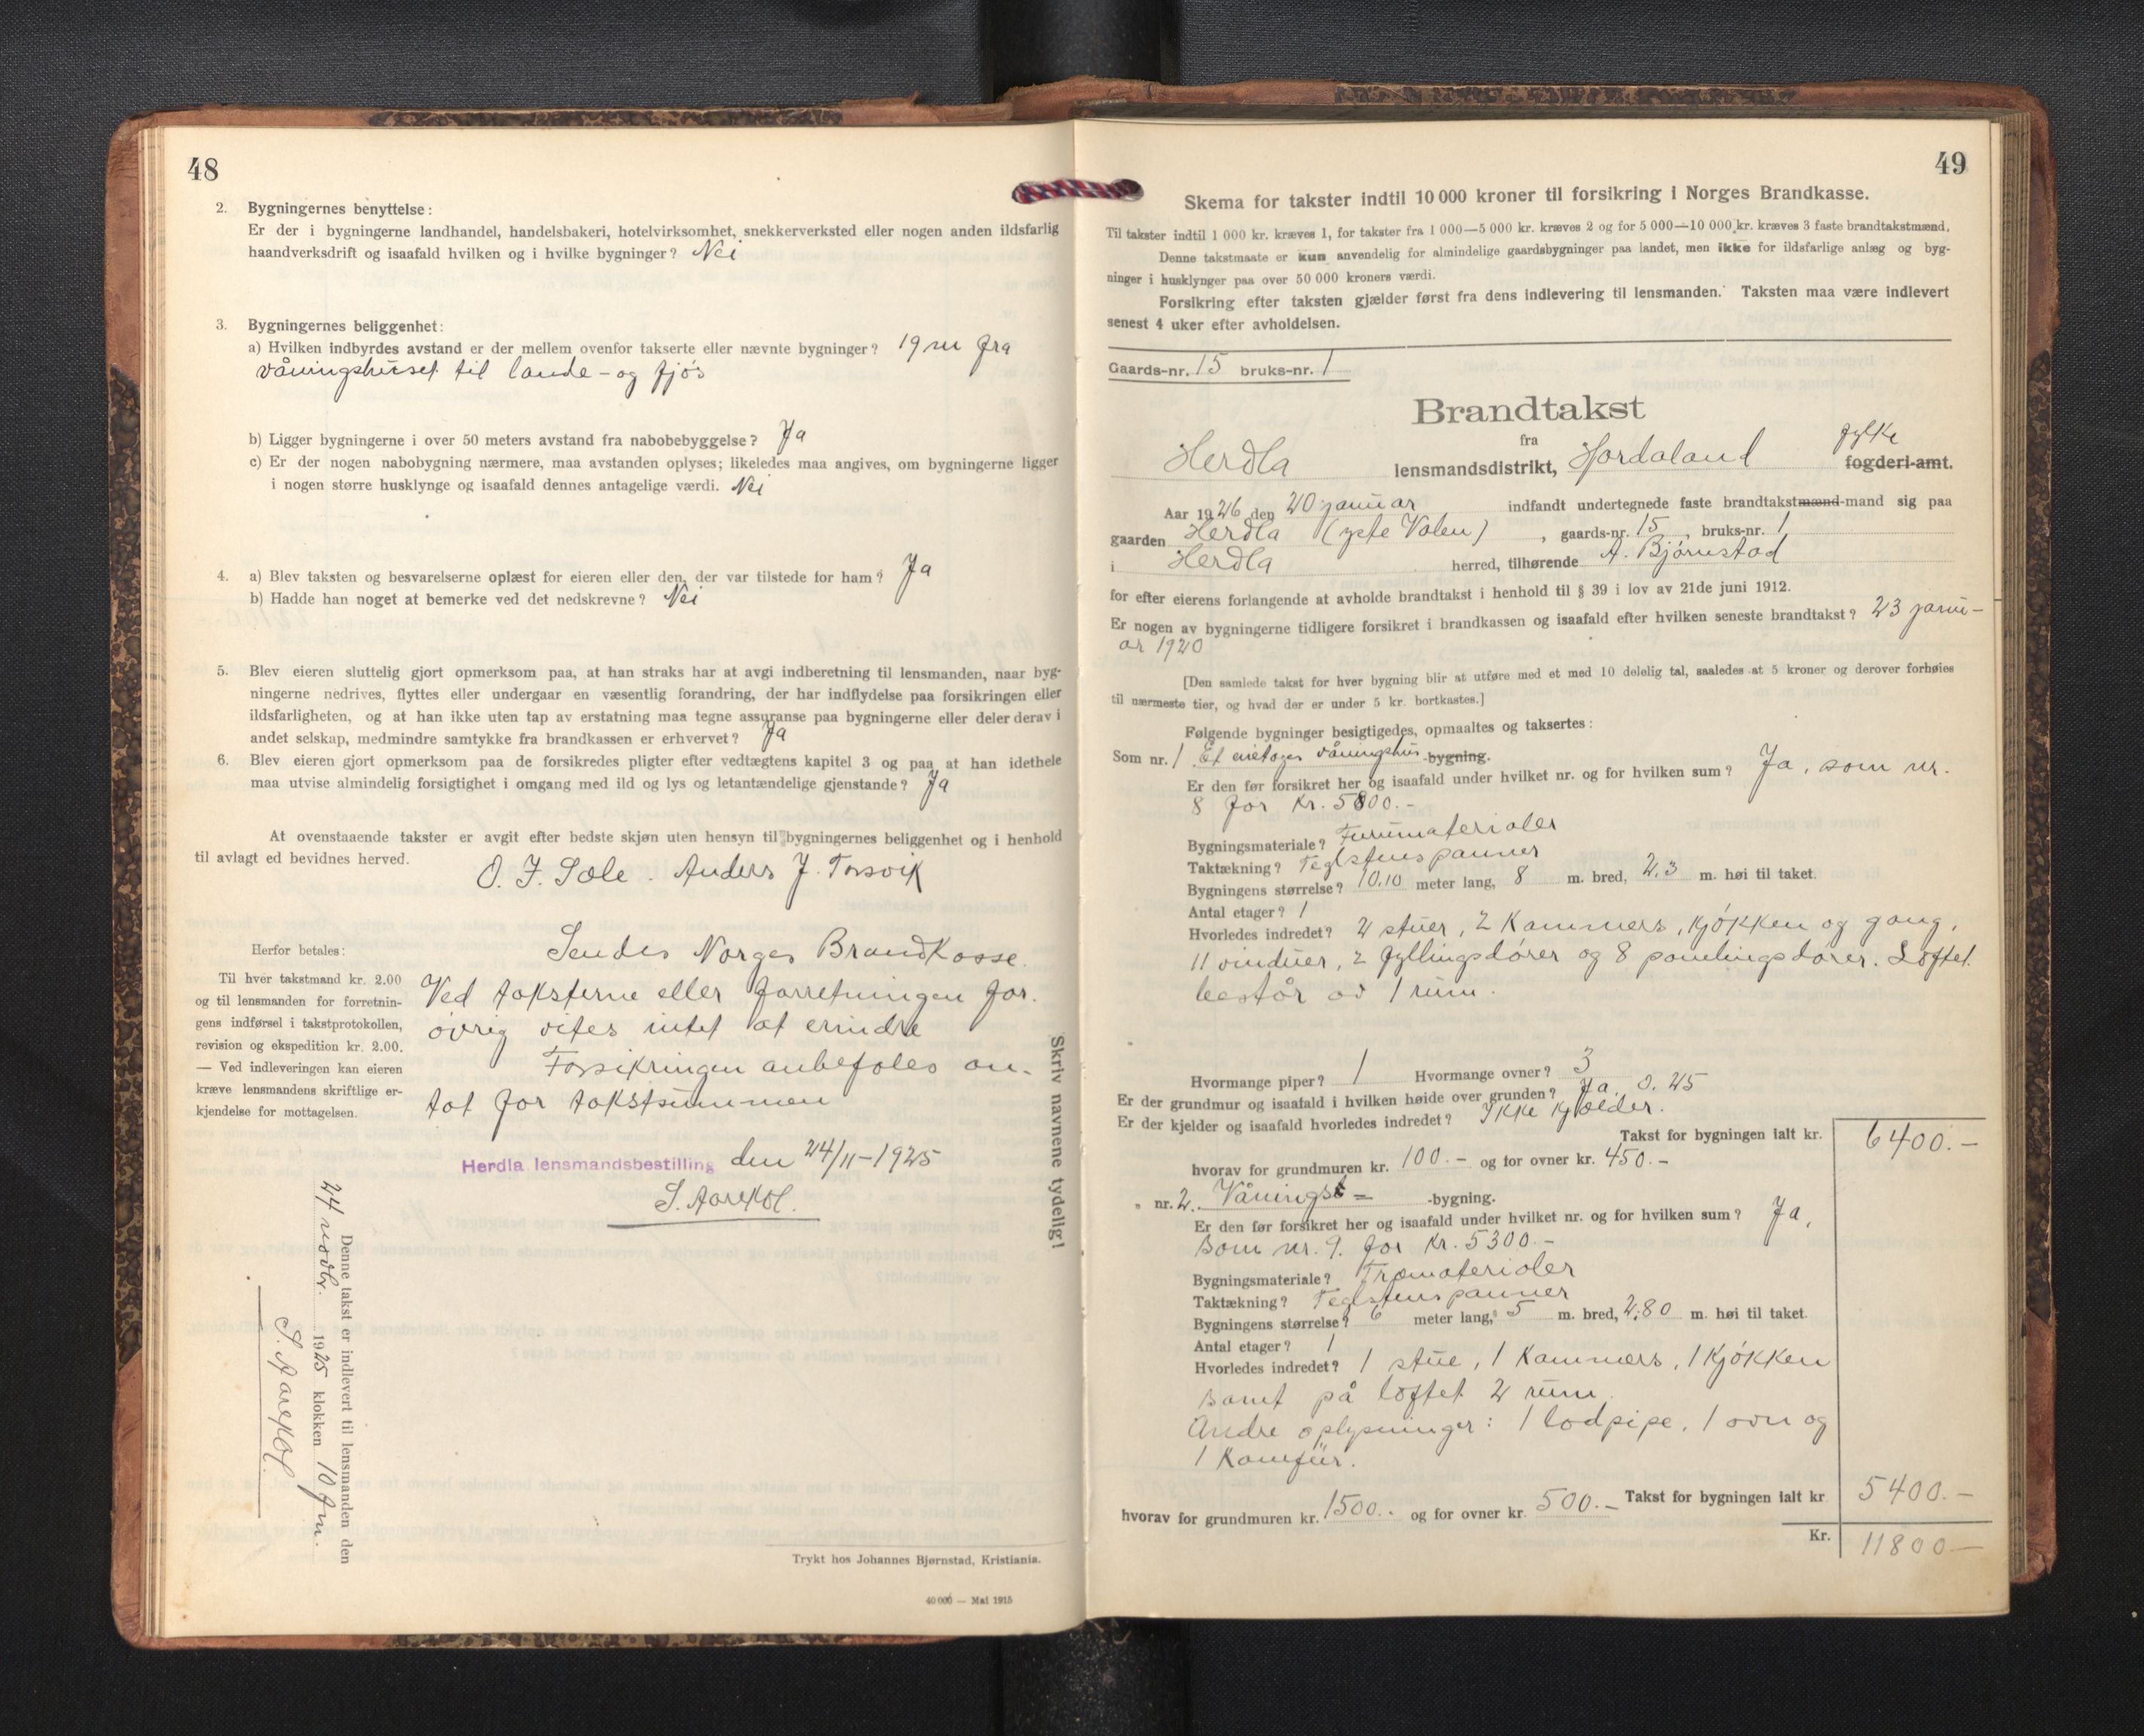 48
2. Bygningernes benyttelse:
Er der i bygningerne landhandel, handelsbakeri, hotelvirksomhet, snekkerverksted eller nogen anden ildsfarlig
haandverksdrift og isaafald hvilken og i hvilke bygninger? Nei
3. Bygningernes beliggenhet:
a) Hvilken indbyrdes avstand er der mellem ovenfor takserte eller nævnte bygninger? 19 m fra
våningshuset til lande- og fjøs
b) Ligger bygningerne i over 50 meters avstand fra nabobebyggelse? Ja
c) Er der nogen nabobygning nærmere, maa avstanden oplyses; likeledes maa angives, om bygningerne ligger
i nogen større husklynge og isaafald dennes antagelige værdi. Nei
4. a) Blev taksten og besvarelserne oplæst for eieren eller den, der var tilstede for ham? Ja
b) Hadde han noget at bemerke ved det nedskrevne? Nei
5. Blev eieren sluttelig gjort opmerksom paa, at han straks har at avgi indberetning til lensmanden, naar byg-
ningerne nedrives, flyttes eller undergaar en væsentlig forandring, der har indflydelse paa forsikringen eller
ildsfarligheten, og at han ikke uten tap av erstatning maa tegne assuranse paa bygningerne eller deler derav i
andet selskap, medmindre samtykke fra brandkassen er erhvervet? Ja
6. Blev eieren gjort opmerksom paa de forsikredes pligter efter vedtægtens kapitel 3 og paa at han idethele
maa utvise almindelig forsigtighet i omgang med ild og lys og letantændelige gjenstande? Ja
At ovenstaaende takster er avgit efter bedste skjøn uten hensyn til bygningernes beliggenhet og i henhold
til avlagt ed bevidnes herved.
O. J. Sæle. Anders J. Torsvik
Herfor betales:
Til hver takstmand kr. 2.00
og til lensmanden for forretnin-
gens indførsel i takstprotokollen,
revision og ekspedition kr. 2.00.
— Ved indleveringen kan eieren
kræve lensmandens skriftlige er-
kjendelse for mottagelsen.
Sendes Norges Brandkasse.
Ved taksterne eller forretningen for-
øvrig vites intet at erindre
Forsikringen anbefales an-
tat for takstsummen
Herdla lensmandsbestilling den 24/11-1925
S. Aarekol.
Skriv navnene tydelig!
Denne takst er indlevert til lensmanden den
24 novbr. 1925 klokken 10 fm.
S. Aarekol.
Trykt hos Johannes Bjørnstad, Kristiania.
40 000 — Mai 1915
49
Skema for takster indtil 10 000 kroner til forsikring i Norges Brandkasse.
Til takster indtil 1 000 kr. kræves 1, for takster fra 1 000—5 000 kr. kræves 2 og for 5 000—10 000 kr. kræves 3 faste brandtakstmænd.
Denne takstmaate er kun anvendelig for almindelige gaardsbygninger paa landet, men ikke for ildsfarlige anlæg og byg-
ninger i husklynger paa over 50 000 kroners værdi.
Forsikring efter taksten gjælder først fra dens indlevering til lensmanden. Taksten maa være indlevert
senest 4 uker efter avholdelsen.
Gaards-nr. 15 bruks-nr. 1
Brandtakst
fra
Herdla lensmandsdistrikt, Hordaland fylke fogderi-amt.
Aar 1926 den 20 januar indfandt undertegnede faste brandtakstmænd-mand sig paa
gaarden Herdla (yste Valen), gaards-nr. 15, bruks-nr. 1
i Herdla herred, tilhørende A. Bjørnstad
for efter eierens forlangende at avholde brandtakst i henhold til § 39 i lov av 21de juni 1912.
Er nogen av bygningerne tidligere forsikret i brandkassen og isaafald efter hvilken seneste brandtakst? 23 janu-
ar 1920
[Den samlede takst for hver bygning blir at utføre med et med 10 delelig tal, saaledes at 5 kroner og derover forhøies
til nærmeste tier, og hvad der er under 5 kr. bortkastes.]
Følgende bygninger besigtigedes, opmaaltes og taksertes:
Som nr. 1 Et enetages våningshus -bygning.
Er den før forsikret her og isaafald under hvilket nr. og for hvilken sum? Ja, som nr.
8 for Kr. 5800.-
Bygningsmateriale? Furumaterialer
Taktækning? Teglstenspanner
Bygningens størrelse? 10.10 meter lang, 8 m. bred, 2.3 m. høi til taket.
Antal etager? 1
Hvorledes indredet? 2 stuer, 2 Kammers, Kjøkken og gang,
11 vinduer, 2 fyllingsdører og 8 panelingsdører. Loftet
består av 1 rum.
Hvormange piper? 1 Hvormange ovner? 3
Er der grundmur og isaafald i hvilken høide over grunden? Ja. 0.25
Er der kjelder og isaafald hvorledes indredet? Ikke Kjælder.
Takst for bygningen ialt kr. 6400.-
hvorav for grundmuren kr. 100.- og for ovner kr. 450.-
" nr. 2. Våningst= -bygning.
Er den før forsikret her og isaafald under hvilket nr. og for hvilken sum? Ja,
som nr. 9. for Kr. 5300.-
Bygningsmateriale? Træmaterialer
Taktækning? Teglstenspanner
Bygningens størrelse? 6 meter lang, 5 m. bred, 2.80 m. høi til taket.
Antal etager? 1
Hvorledes indredet? 1 stue, 1 Kammers, 1 Kjøkken
samt på loftet 2 rum.
Andre oplysninger: 1 lodpipe, 1 ovn og
1 Komfur.
Takst for bygningen ialt kr 5400.-
hvorav for grundmuren kr. 1500.- og for ovner kr. 500.-
Kr. 11800-